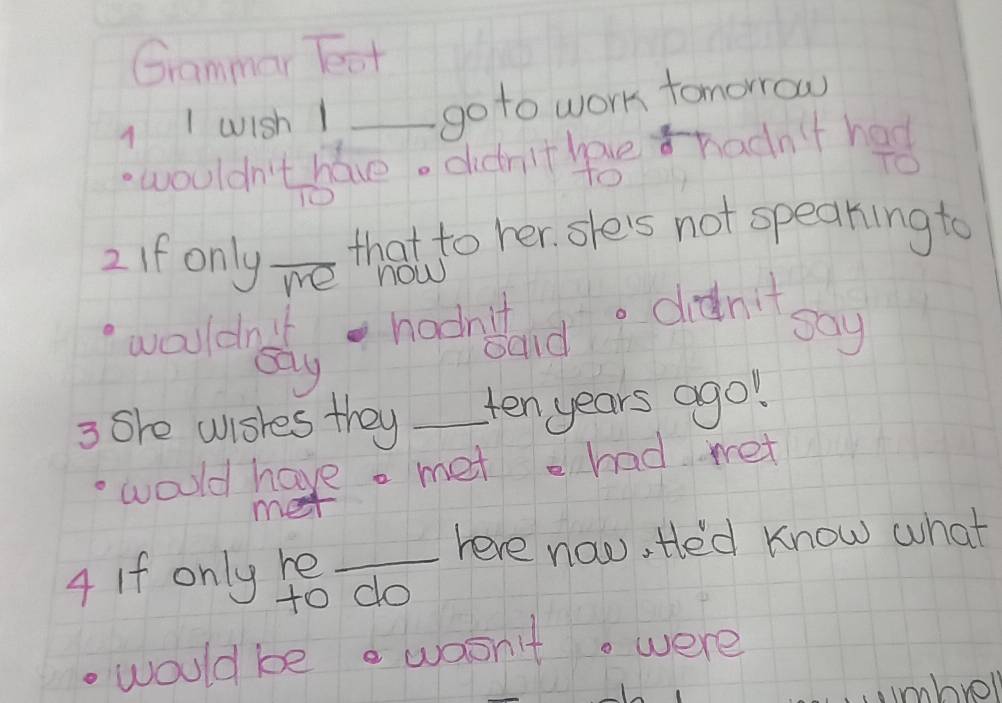 Grammar Test
1 I wish I ___ go to work tomorrow
• wouldn't have to • didn't have to • hadn't had to
2 If only ___ that to her. she's not speaking to
me now
• wouldn't say • hadn't said • didn't say
3 She wishes they ___ ten years ago!
• would have met • met • had met
4 If only he ___ here now. He'd know what
to do
• would be • wasn't • were